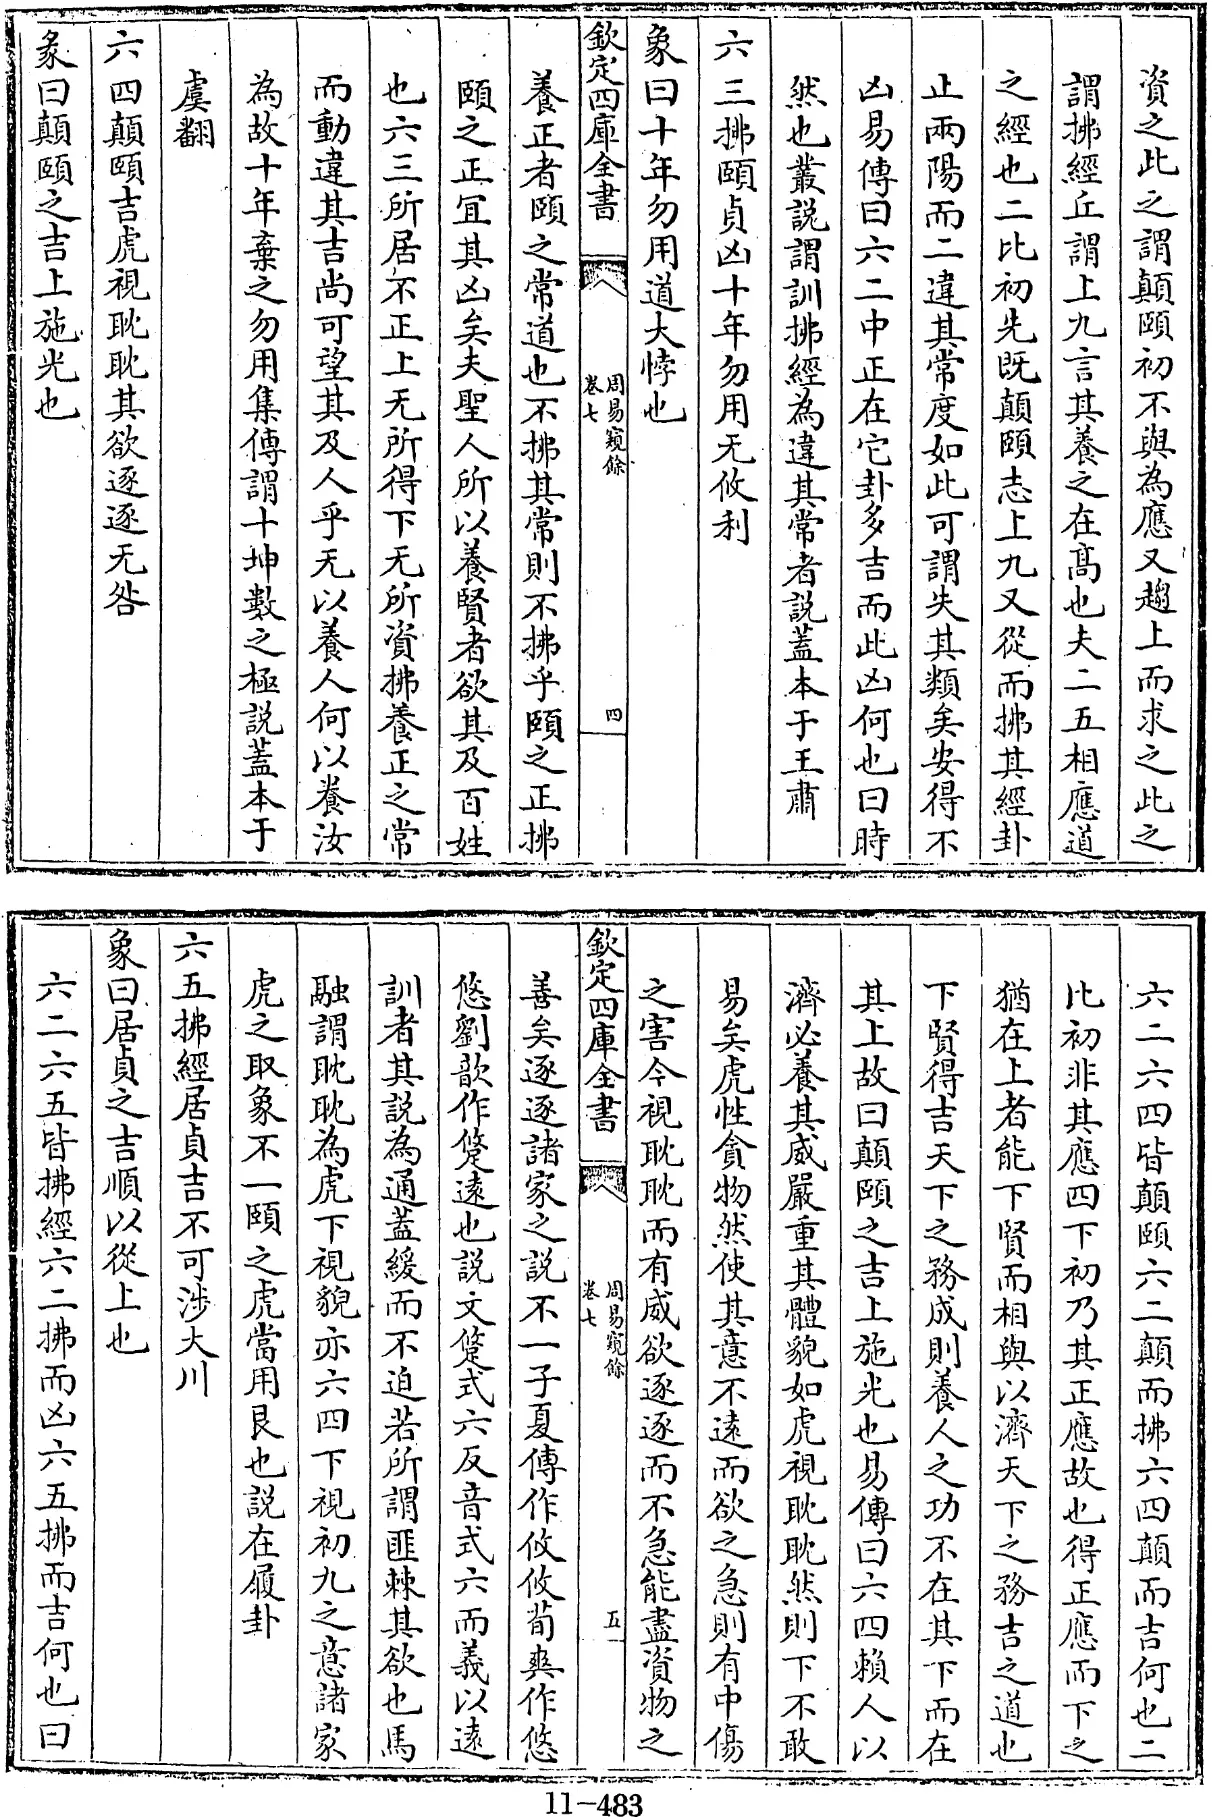 資之此之謂顛頤初不與為應又趨上而求之此之
謂拂經丘謂上九言其養之在髙也夫二五相應道
之經也二比初先既顛頤志上九又從而拂其經卦
止兩陽而二違其常度如此可謂失其類矣安得不
凶易傳曰六二中正在它卦多吉而此凶何也曰時
然也叢説謂訓拂經為違其常者説蓋本于王肅
六三拂頤貞凶十年勿用无攸利
象曰十年勿用道大悖也
欽定四庫全書
周易窺餘
卷七
四
養正者頤之常道也不拂其常則不拂乎頤之正拂
頤之正宜其凶矣夫聖人所以養賢者欲其及百姓
也六三所居不正上无所得下无所資拂養正之常
而動違其吉尚可望其及人乎无以養人何以養汝
為故十年棄之勿用集傳謂十坤數之極説蓋本于
虞翻
六四顛頤吉虎視耽耽其欲逐逐无咎
象曰顛頤之吉上施光也
六二六四皆顛頤六二顛而拂六四顛而吉何也二
比初非其應四下初乃其正應故也得正應而下之
猶在上者能下賢而相與以濟天下之務吉之道也
下賢得吉天下之務成則養人之功不在其下而在
其上故曰顛頤之吉上施光也易傳曰六四賴人以
濟必養其威嚴重其體貌如虎視耽耽然則下不敢
易矣虎性貪物然使其意不遠而欲之急則有中傷
之害今視耽耽而有威欲逐逐而不急能盡資物之
欽定四庫全書
周易窺餘
卷七
五
善矣逐逐諸家之説不一子夏傳作攸攸荀爽作悠
悠劉歆作跾遠也説文跾式六反音式六而義以遠
訓者其説為通蓋緩而不迫若所謂匪棘其欲也馬
融謂耽耽為虎下視貌亦六四下視初九之意諸家
虎之取象不一頤之虎當用艮也説在履卦
六五拂經居貞吉不可涉大川
象曰居貞之吉順以從上也
六二六五皆拂經六二拂而凶六五拂而吉何也曰
11-483